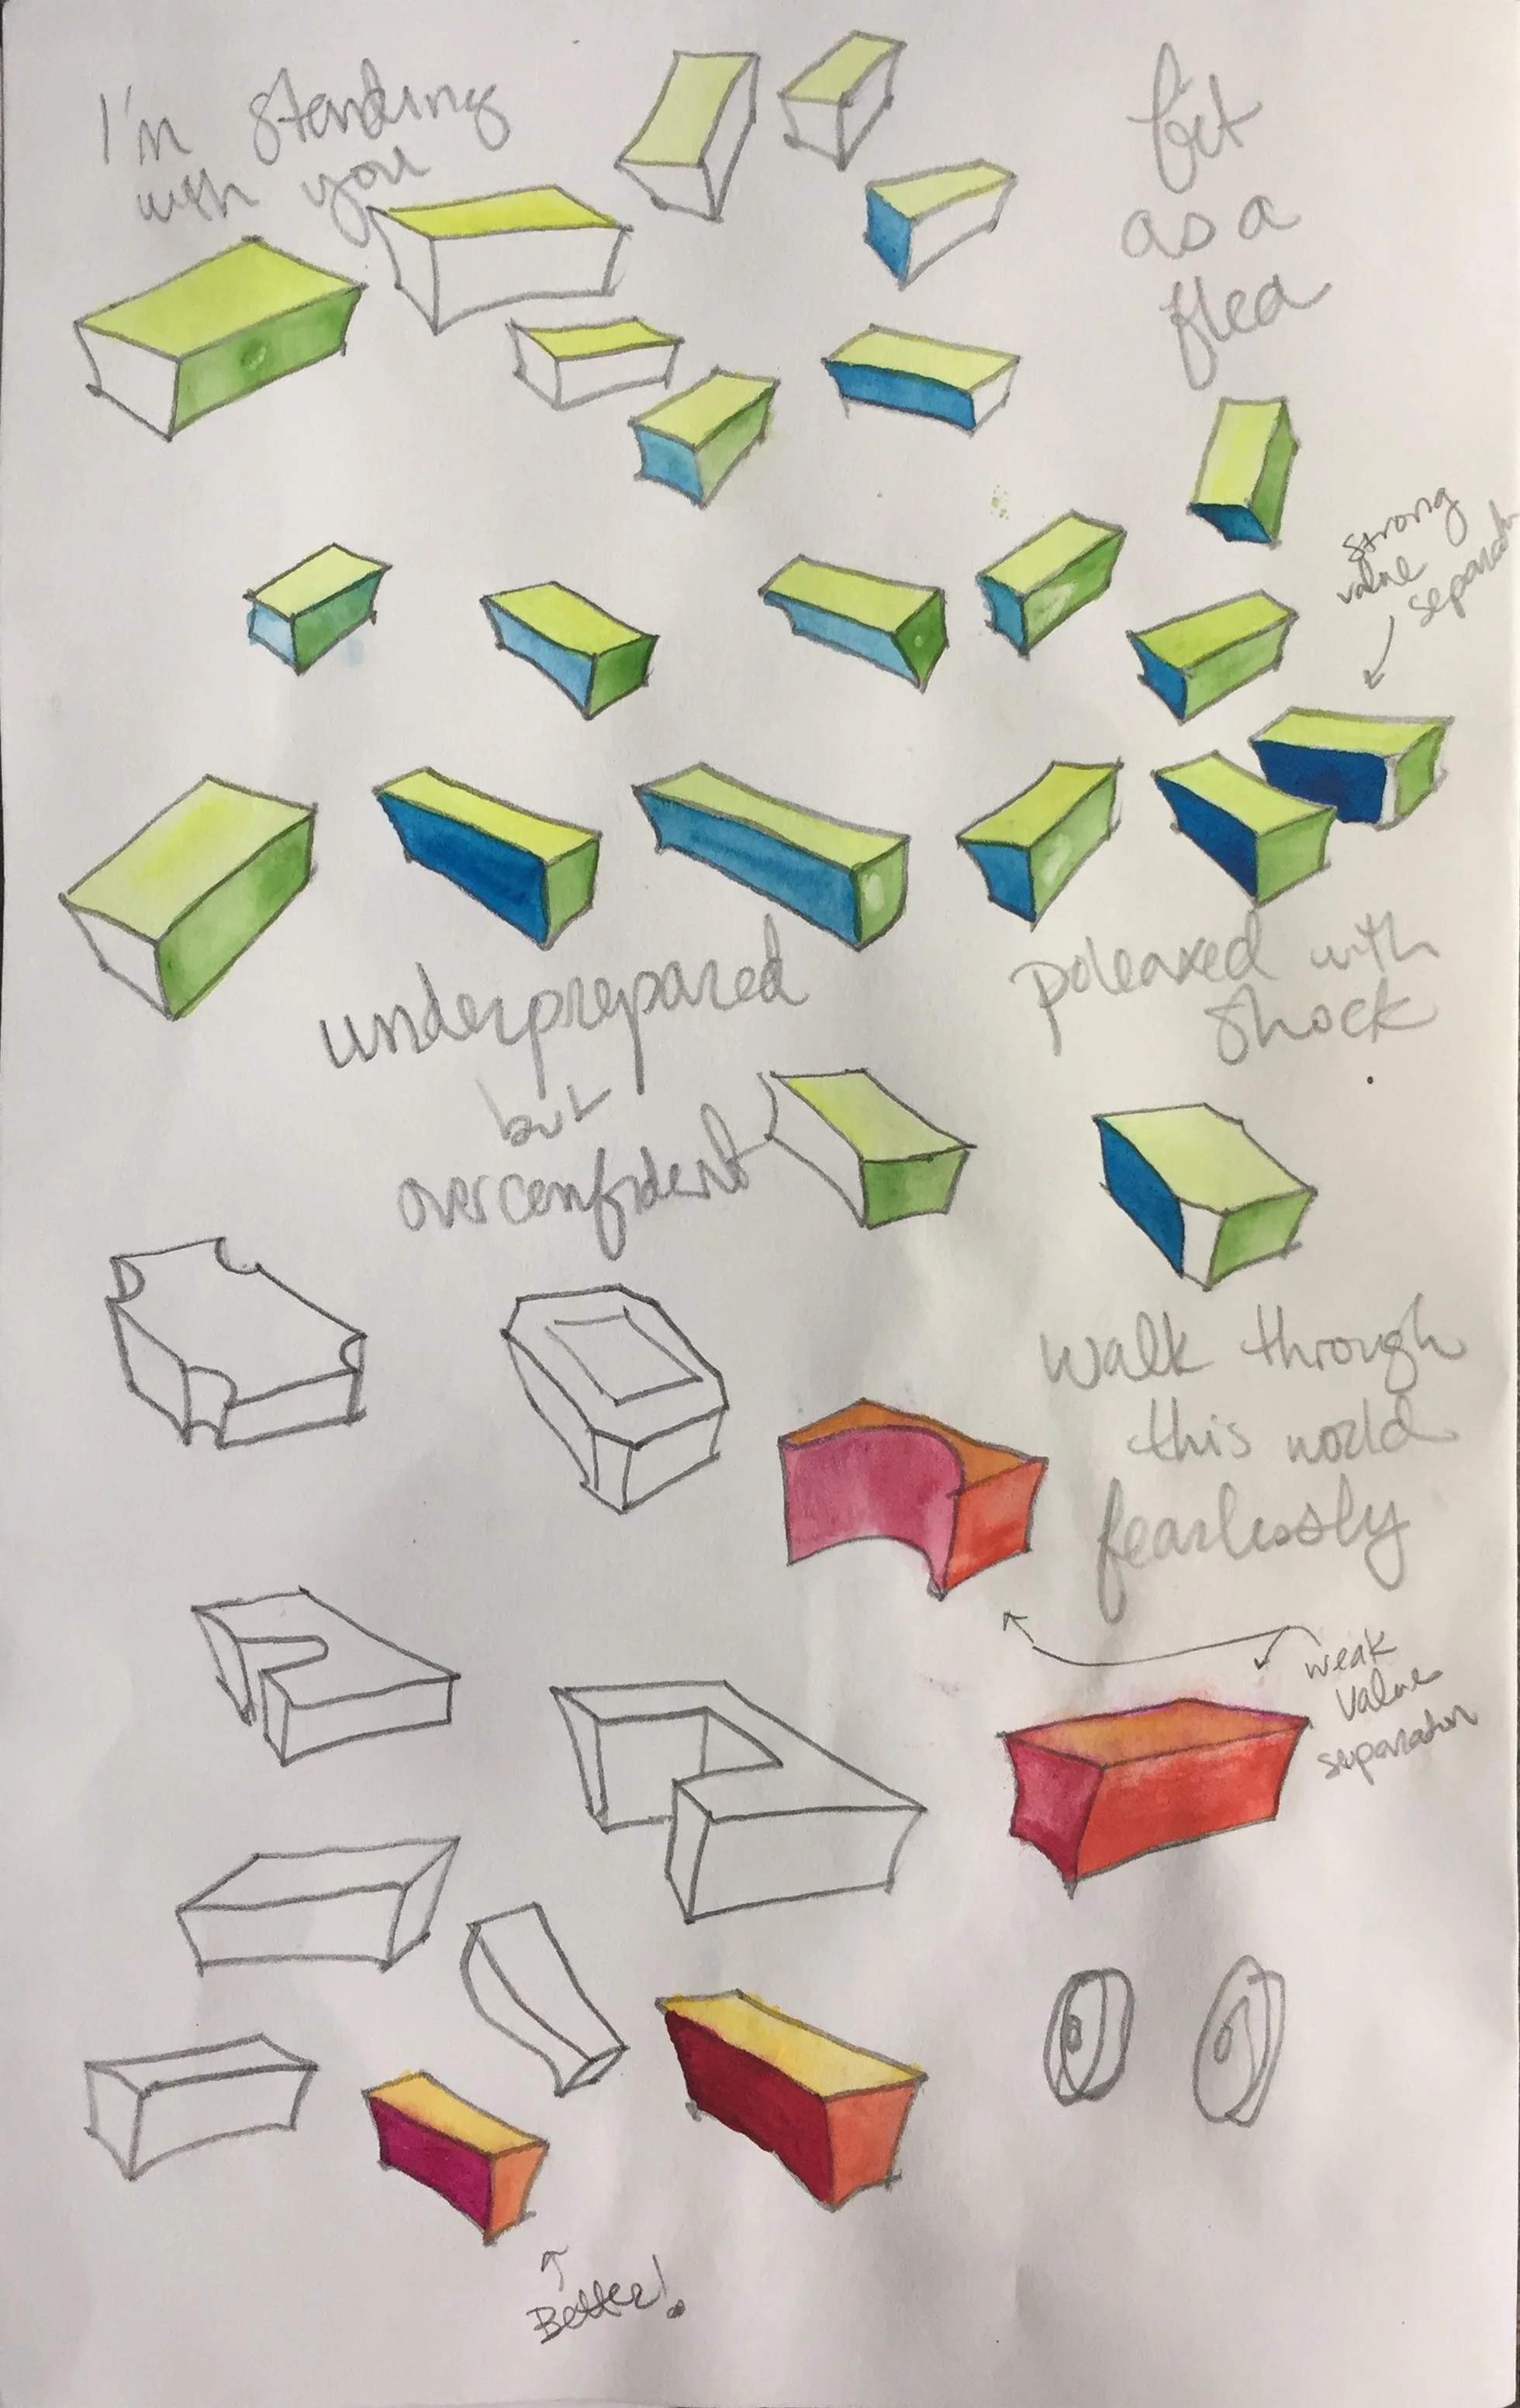 I'm standing
with you
fit
as a
flea
strong
value
separat
underprepared
but
overconfident
poleaxed with
shock
walk through
this world
fearlessly
weak
value
separation
Better!